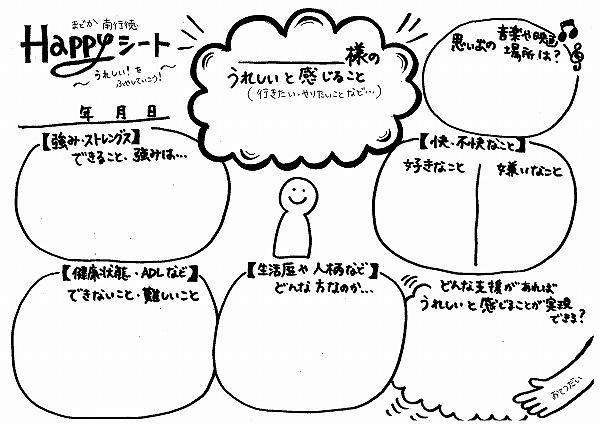 まどか 南行徳
Happyシート
うれしい！を
ふやしていこう！
年 月 日
様の
うれしいと感じること
(行きたい・やりたいことなど…)
思い出の 音楽や映画
場所は？
【強み・ストレングス】
できること、強みは…
【快・不快なこと】
好きなこと
嫌いなこと
【健康状態・ADLなど】
できないこと・難しいこと
【生活歴や人柄など】
どんな方なのか…
どんな支援があれば
うれしいと感じることが実現
できる？
おてつだい